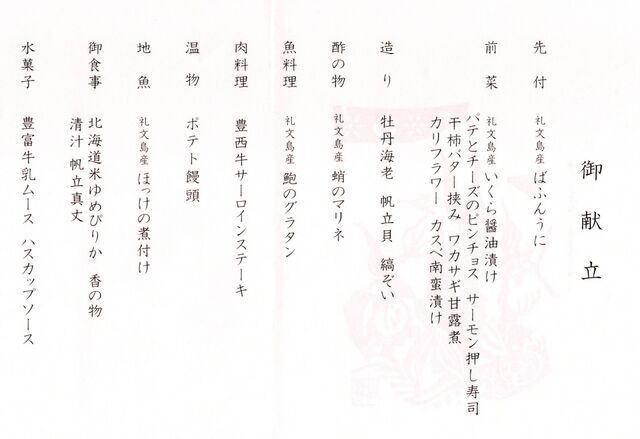 御献立
先付 礼文島産 ばふんうに
前菜 礼文島産 いくら醤油漬け
パテとチーズのピンチョス サーモン押し寿司
干柿バター挟み ワカサギ甘露煮
カリフラワー カスベ南蛮漬け
造り 牡丹海老 帆立貝 縞ぞい
酢の物 礼文島産 蛸のマリネ
魚料理 礼文島産 鮑のグラタン
肉料理 豊西牛サーロインステーキ
温物 ポテト饅頭
地魚 礼文島産 ほっけの煮付け
御食事 北海道米ゆめぴりか 香の物
清汁 帆立真丈
水菓子 豊富牛乳ムース ハスカップソース